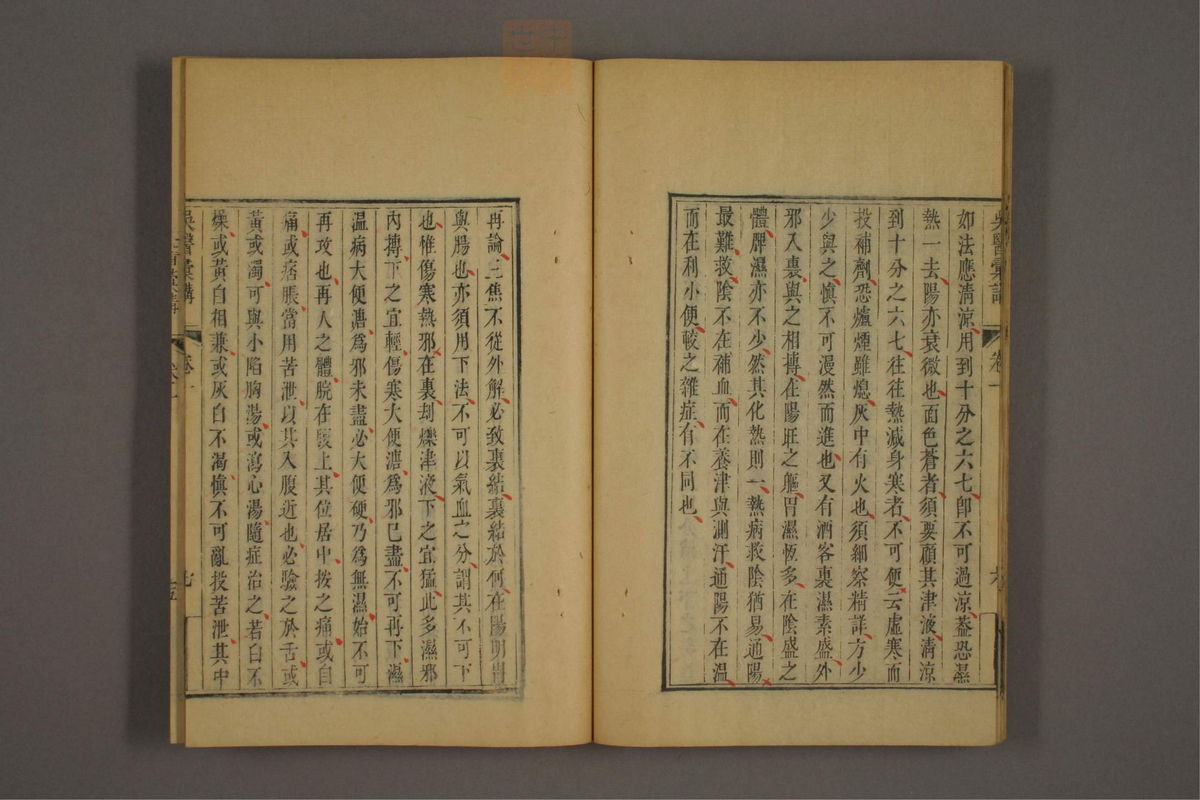 如法應清涼用到十分之六七卽不可過涼葢恐濕
熱一去陽亦衰微也面色蒼者須要顧其津液清涼
到十分之六七往往熱減身寒者不可便云虛寒而
投補劑恐爐煙雖熄灰中有火也須細察精詳方少
少與之慎不可漫然而進也又有酒客裏濕素盛外
邪入裏與之相搏在陽旺之軀胃濕恆多在陰盛之
體脾濕亦不少然其化熱則一熱病救陰猶易通陽
最難救陰不在補血而在養津與測汗通陽不在溫
而在利小便較之雜症有不同也
再論三焦不從外解必致裏結裏結於何在陽明胃
與腸也亦須用下法不可以氣血之分謂其不可下
也惟傷寒熱邪在裏劫爍津液下之宜猛此多濕邪
內搏下之宜輕傷寒大便溏爲邪已盡不可再下濕
温病大便溏爲邪未盡必大便硬乃爲無濕始不可
再攻也再人之體脘在腹上其位居中按之痛或自
痛或痞脹當用苦泄以其入腹近也必驗之於舌或
黃或濁可與小陷胸湯或瀉心湯隨症治之若白不
燥或黃白相兼或灰白不渴慎不可亂投苦泄其中
吳醫彙講
卷一